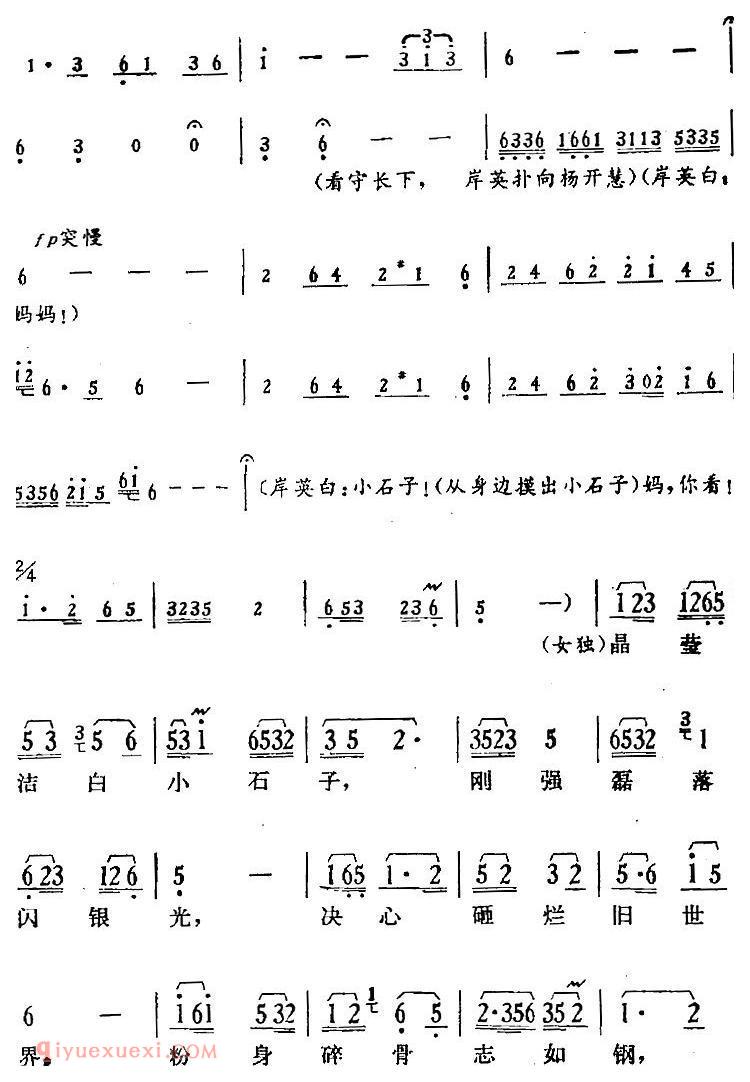 1· 3 6 1 3 6 | i — — 3 i 3 | 6 — —
6 3 0 0 | 3 6 — — | 6336 1661 3113 5335
(看守长下, 岸英扑向杨开慧)(岸英白:
fp突慢
6 — — — | 2 64 2#1 6 | 24 62 2i 45
妈妈!)
i2 6· 5 6 — | 2 64 2#1 6 | 24 62 302 i6
5356 2i5 6i 6 — — — | (岸英白:小石子!(从身边摸出小石子)妈,你看!
2/4
i· 2 65 | 3235 2 | 653 236 | 5 —) | 123 1265
(女独)晶莹
53 3 5 6 | 53i 6532 | 35 2· | 3523 5 | 6532 3 1
洁白小石子, 刚强磊落
623 126 | 5 — | 165 1·2 | 52 32 | 5·6 i5
闪银光, 决心砸烂旧世
6 — | i6i 532 | 12 1 6 5 | 2·356 352 | 1· 2
界。粉身碎骨志如钢,
qiyuexuexi.com